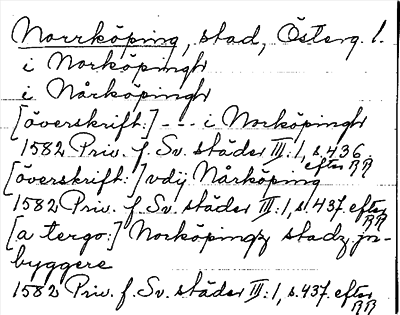 Norrköping, stad, Österg. l.
i Norköpingh
i Nårköpingh
[överskrift:] --- i Norköpingh
1582 Priv. f. Sv. städer III:1, s. 436
efter RR
[överskrift:] vdij Nårköping
1582 Priv. f. Sv. städer III:1, s. 437. efter
RR
[a tergo:] Norköpingz stadz jn-
byggere
1582 Priv. f. Sv. städer III:1, s. 437. efter
RR